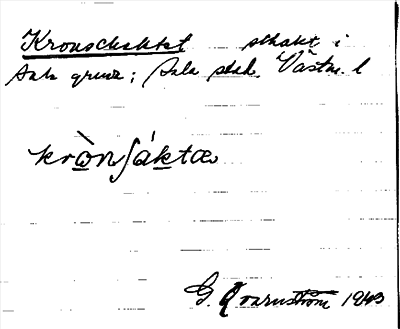 Kronschaktet schakt i
Sala gruva; Sala stad, Västm. l
krò̲nʃákt̲æ
G. Qvarnström 1943